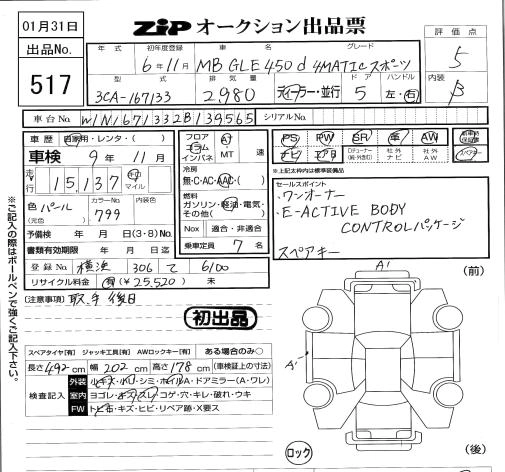 01月31日
ZIP オークション出品票
出品No.
517
評価点
5
内装
β
年式 初年度登録 車名 グレード
6年11月 MB GLE450d 4MATIC スポーツ
型式 排気量 ドア ハンドル
3CA-167133 2,980 ディーラー・並行 5 左・右
車台No. W1N1671332B139565 シリアルNo.
車歴 自家用・レンタ・( )
車検 9年 11月
走行 15,137 km マイル
色 パール カラーNo. 799 内装色
(元色)
予備検 年 月 日(3・8)No.
書類有効期限 年 月 日迄
登録No. 横浜 306 て 6100
リサイクル料金 有(¥25,520) 未
フロア コラム インパネ AT MT 速
冷房
無・C・AC・AAC・( )
燃料
ガソリン・軽油・電気・その他( )
Nox 適合・非適合
乗車定員 7 名
PS PW SR 革 AW
ナビ エアB Dチューナー(純・社外含む) 社外ナビ 社外AW スペアキー
※上記太枠内は標準装備品
セールスポイント
・ワンオーナー
・E-ACTIVE BODY
CONTROLパッケージ
スペアキー
注意事項 取、手 後日
初出品
スペアタイヤ[有] ジャッキ工具[有] AWロックキー[有] ある場合のみ○
長さ492cm 幅202cm 高さ178cm (車検証上の寸法)
検査記入
外装 小キズ・小凹・シミ・ホイルA・ドアミラー(A・ワレ)
室内 ヨゴレ・キズ・スレ・コゲ・穴・キレ・破れ・ウキ
FW トビ石・キズ・ヒビ・リペア跡・X要ス
A1
(前)
A1
(後)
ロック
※ご記入の際はボールペンで強くご記入下さい。